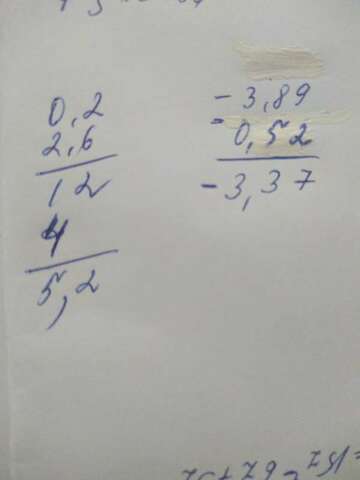 0,2
2,6
12
4
5,2
- 3,89
- 0,52
- 3,37